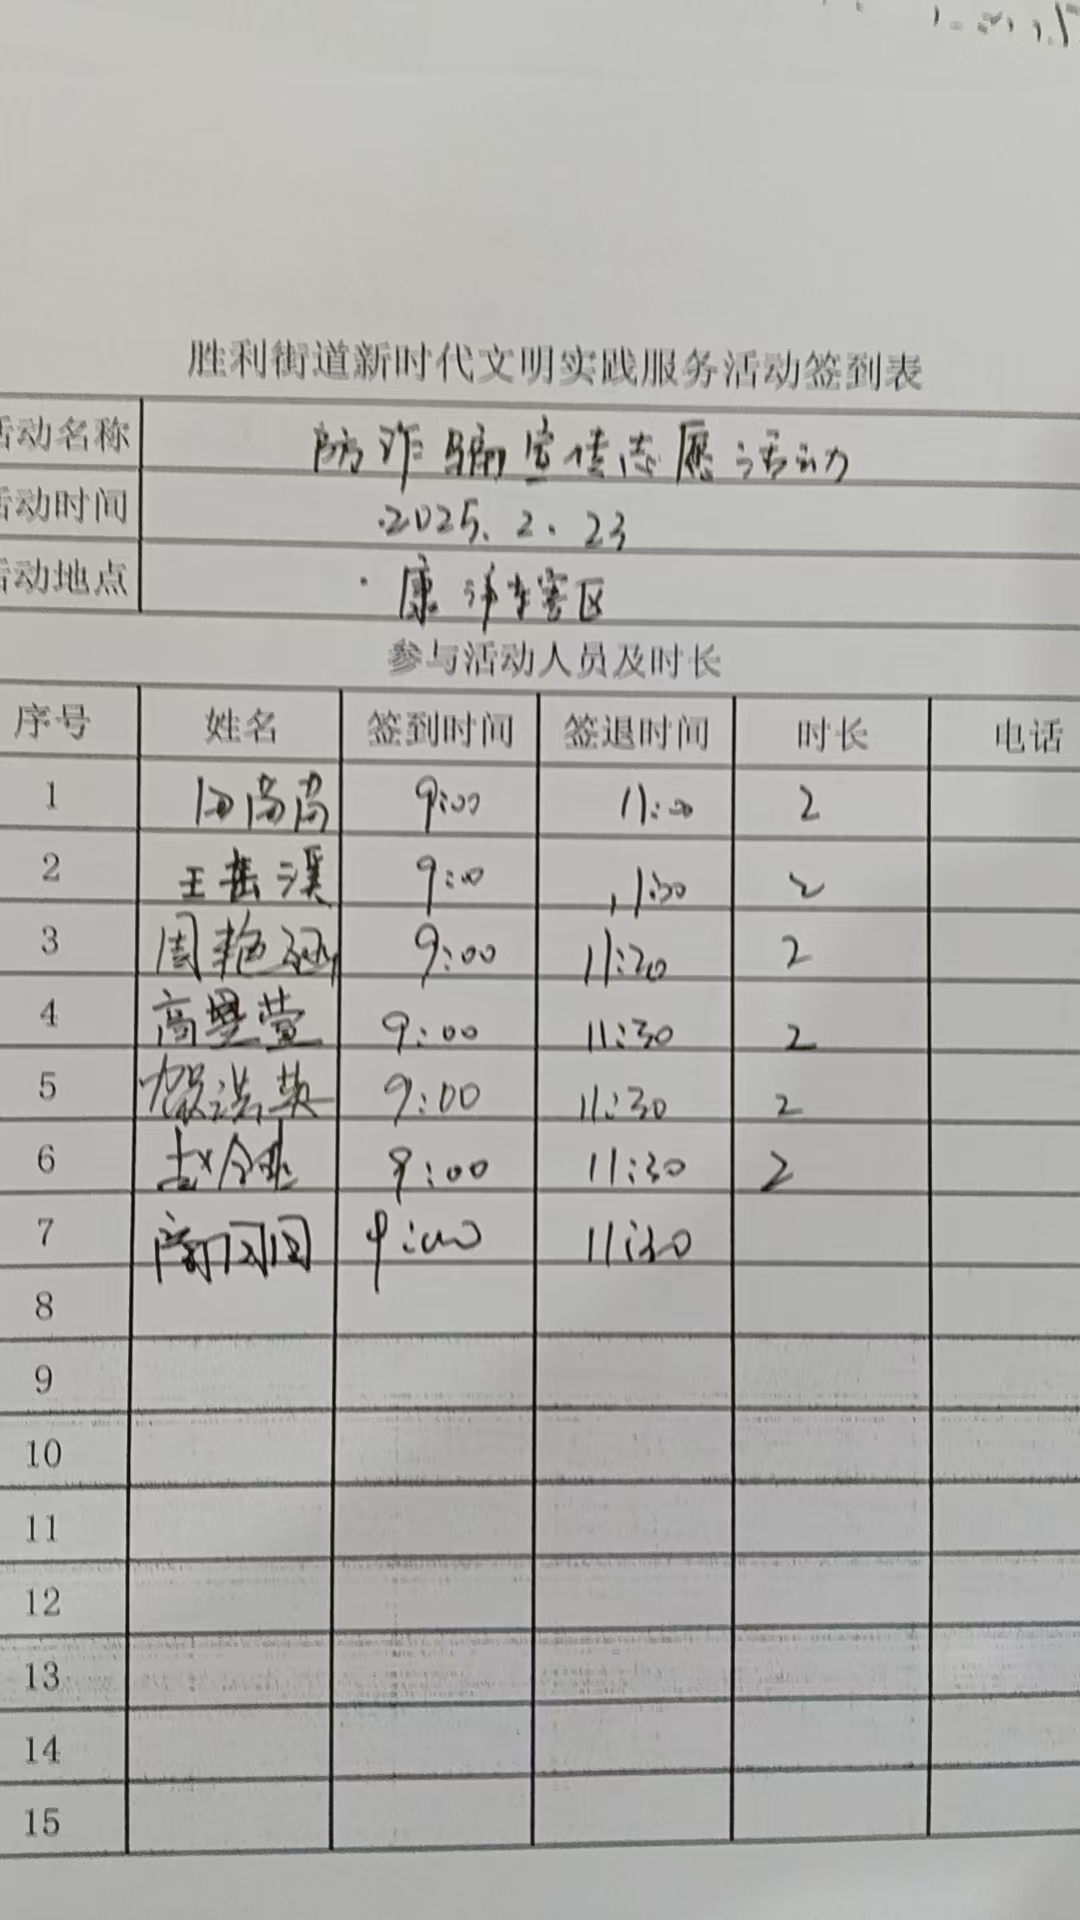 胜利街道新时代文明实践服务活动签到表
活动名称 防诈骗宣传志愿活动
活动时间 2025.2.23
活动地点 康洋辖区
参与活动人员及时长
序号 姓名 签到时间 签退时间 时长 电话
1 9:00 11:00 2
2 王岳溪 9:00 11:30 2
3 周艳涵 9:00 11:20 2
4 高墨萱 9:00 11:30 2
5 贺洪英 9:00 11:30 2
6 赵 9:00 11:30 2
7 9:00 11:30
8
9
10
11
12
13
14
15